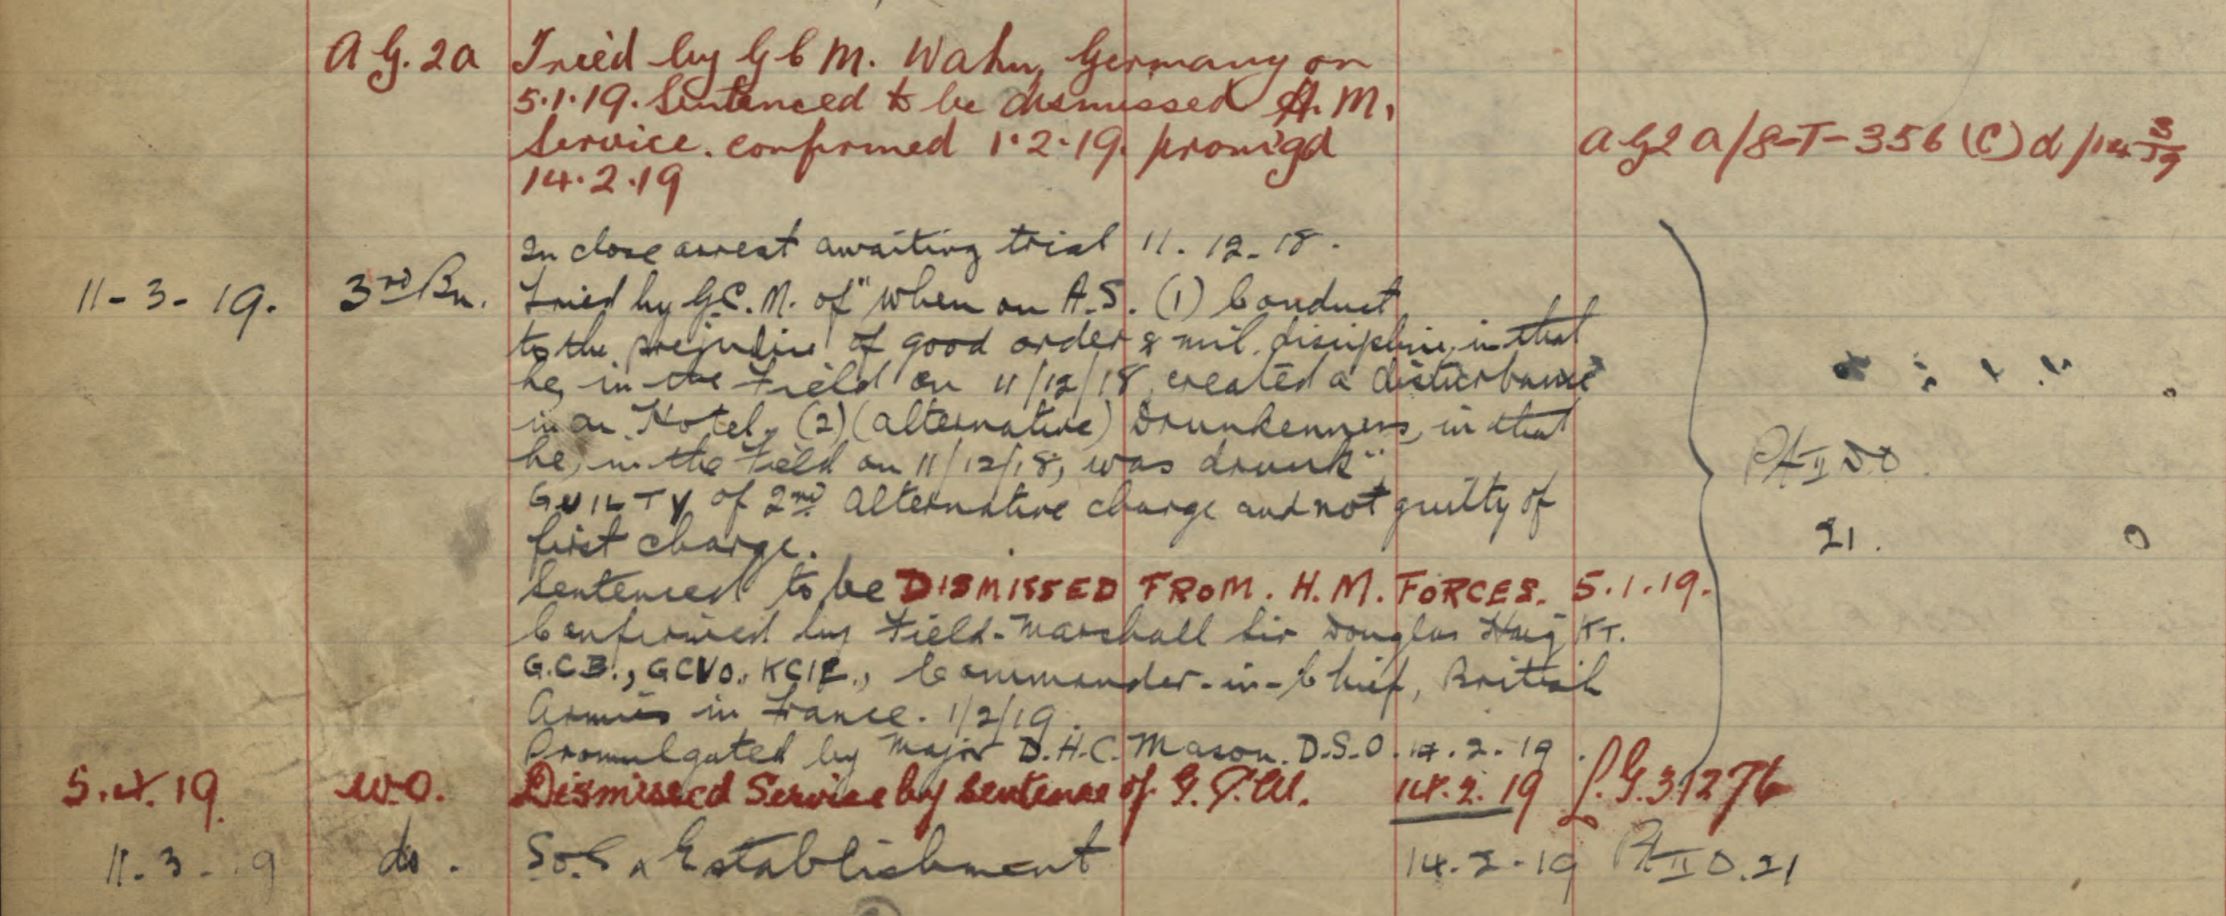 A G. 2a Tried by G C M. Wahn, Germany on
5.1.19. Sentenced to be dismissed H. M.
Service. confirmed 1.2.19. promigd
14.2.19
AG2a/8-T-356 (C) d/14 3/19
In close arrest awaiting trial 11. 12. 18.
11-3-19. 3rd Bn. Tried by G.C.M. of "when on A.S. (1) Conduct
to the prejudice of good order & mil. discipline, in that
he, in the Field on 11/12/18, created a disturbance
in an Hotel. (2) (alternative) Drunkenness, in that
he, in the Field on 11/12/18, was drunk"
Pt II D O
GUILTY of 2nd alternative charge and not guilty of
first charge.
21.
Sentenced to be DISMISSED FROM. H. M. FORCES. 5.1.19.
Confirmed by Field-Marshall Sir Douglas Haig KT.
G.C.B., GCVO., KCIE., Commander-in-Chief, British
Armies in France. 1/2/19.
Promulgated by Major D.H.C. Mason. D.S.O. 14.2.19.
5.4.19. W.O. Dismissed Service by sentence of G.C.M. 14.2.19 L.G. 31276
11.3.19 do. S.o.S. Establishment 14.2.19 Pt II O.21